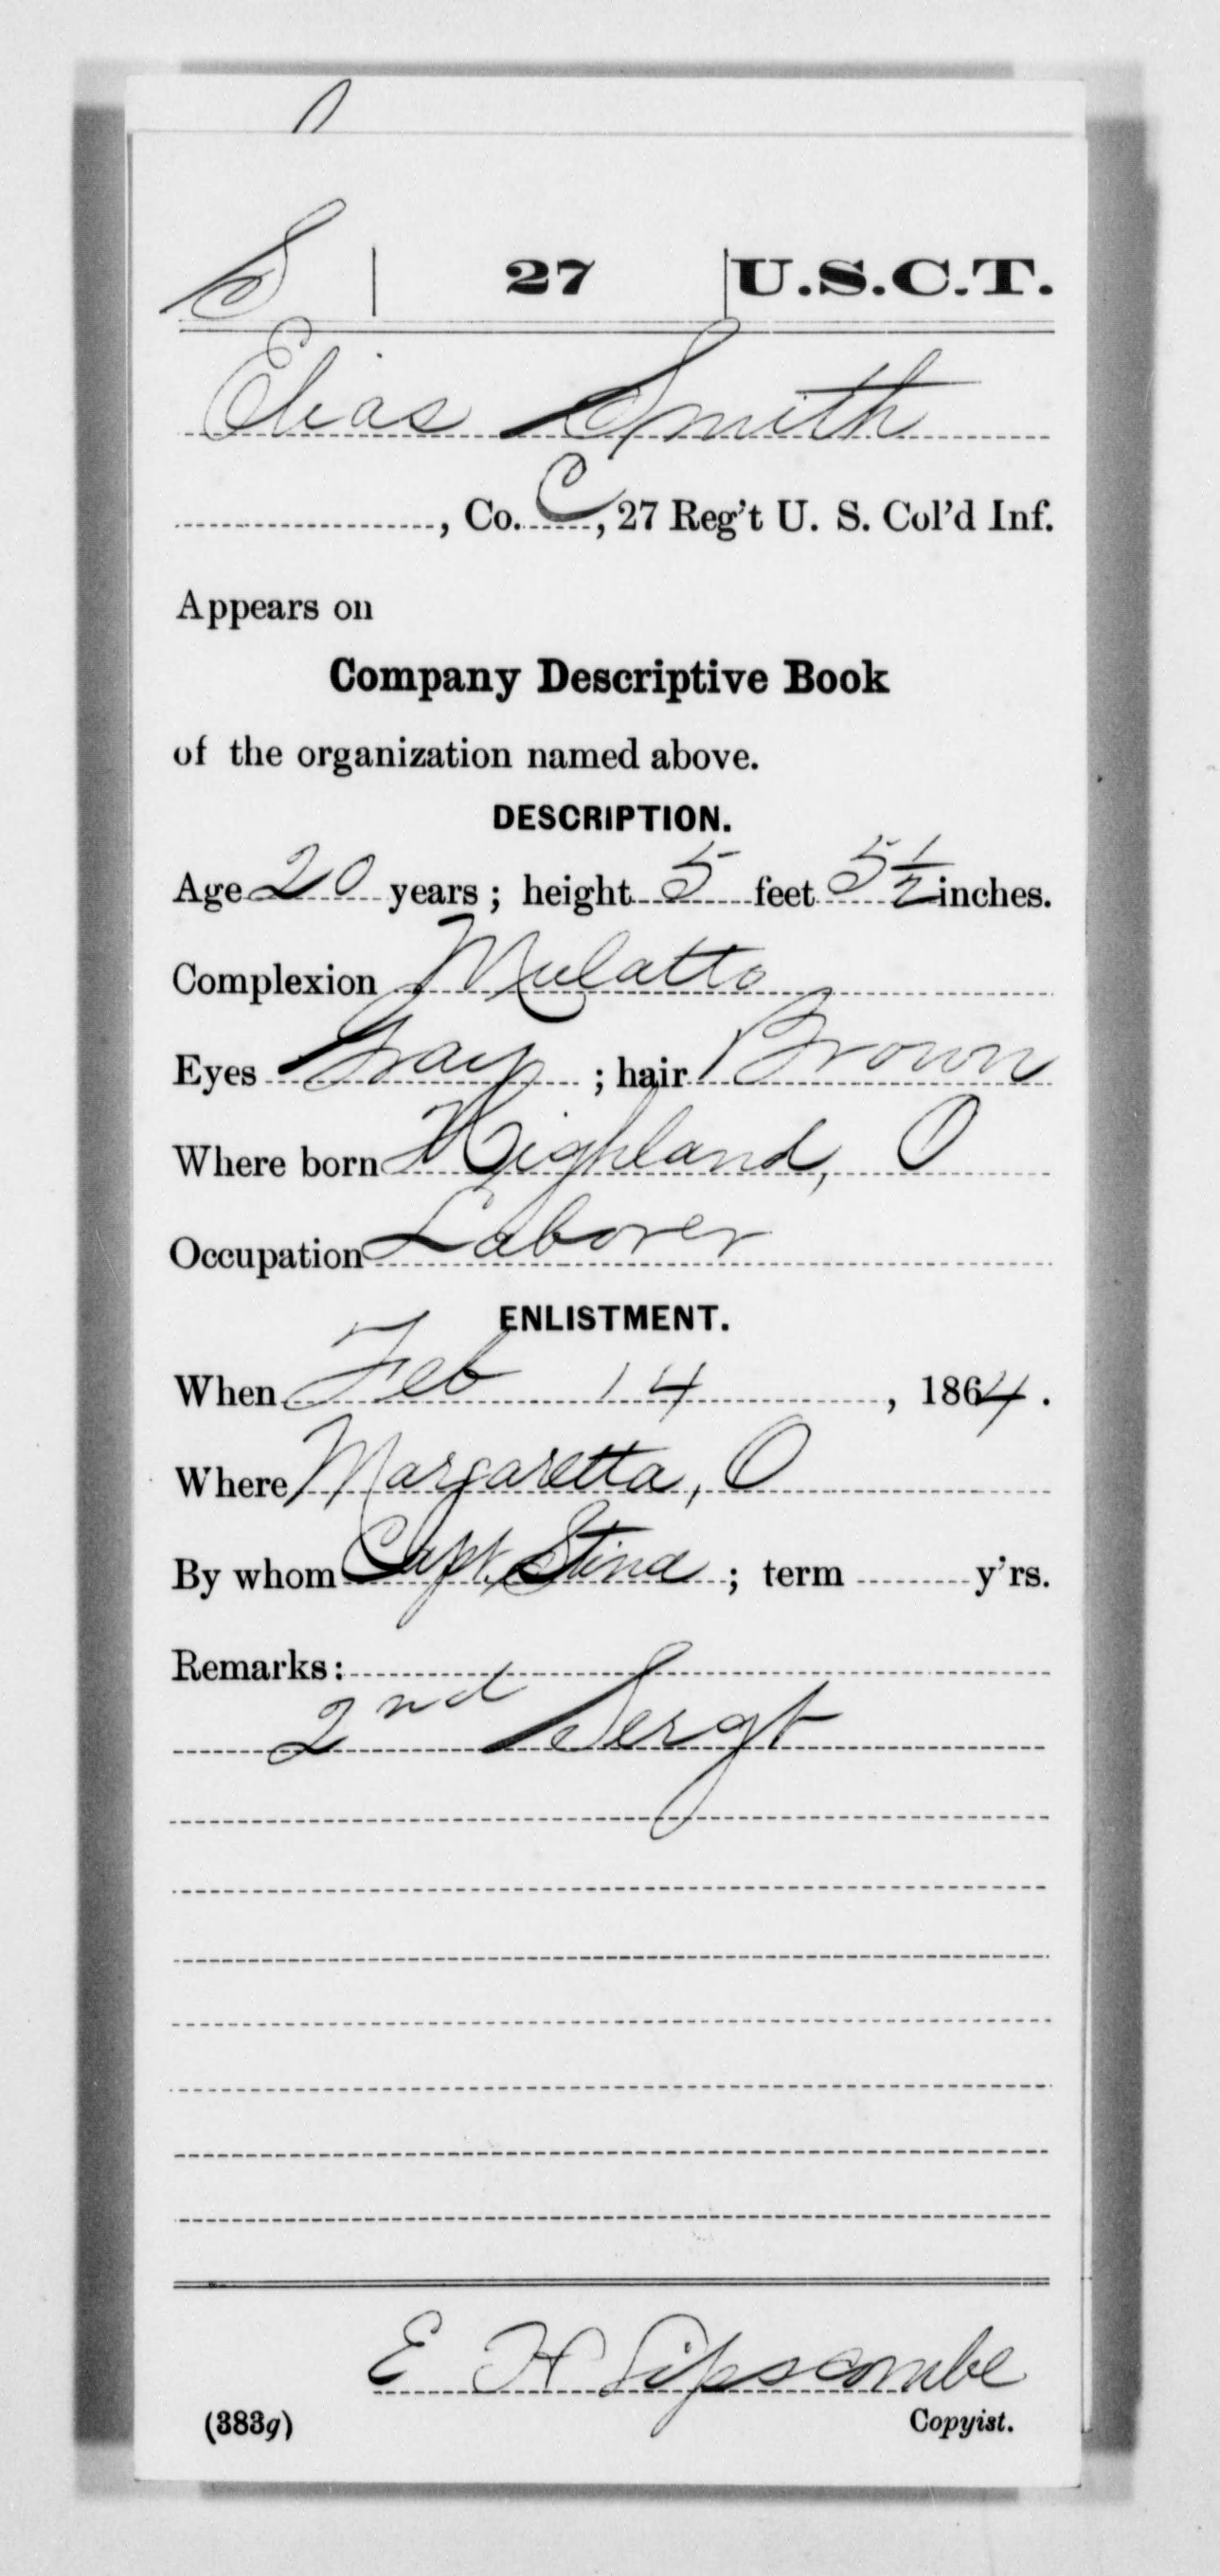 S | 27 | U.S.C.T.
Elias Smith
, Co. C, 27 Reg't U. S. Col'd Inf.
Appears on
Company Descriptive Book
of the organization named above.
DESCRIPTION.
Age 20 years; height 5 feet 5 1/2 inches.
Complexion Mulatto
Eyes Gray; hair Brown
Where born Highland, O
Occupation Laborer
ENLISTMENT.
When Feb 14, 1864.
Where Margaretta, O
By whom Capt. Stine; term y'rs.
Remarks:
2nd Sergt
E H Lipscombe
(383g) Copyist.